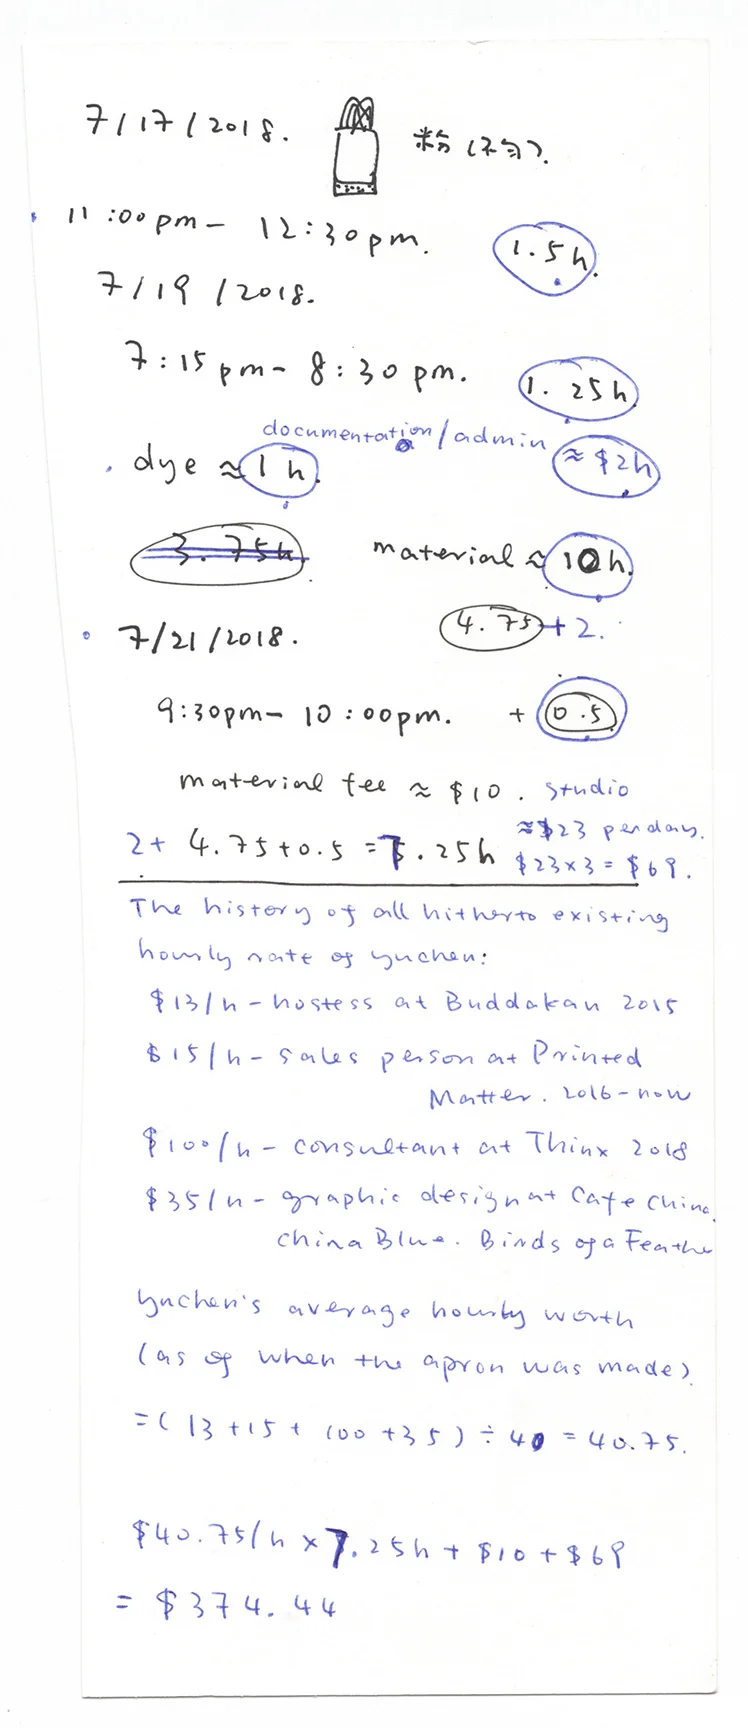 7/17/2018. 粉(不匀).
11:00pm – 12:30pm. 1.5h.
7/19/2018.
7:15pm – 8:30pm. 1.25h
documentation/admin
dye ≈ 1h. ≈ $2h
3.75h material ≈ 10h.
4.75 + 2.
7/21/2018.
9:30pm – 10:00pm. + 0.5
material fee ≈ $10. studio
≈ $23 per day.
2 + 4.75 + 0.5 = 7.25h $23 x 3 = $69.
The history of all hitherto existing
hourly rate of Yuchen:
$13/h – hostess at Buddakan 2015
$15/h – sales person at Printed
Matter. 2016 – now
$100/h – consultant at Thinx 2018
$35/h – graphic design at Cafe China.
China Blue. Birds of a Feathe
Yuchen's average hourly worth
(as of when the apron was made)
= (13 + 15 + 100 + 35) ÷ 4 = 40.75.
$40.75/h x 7.25h + $10 + $69
= $374.44